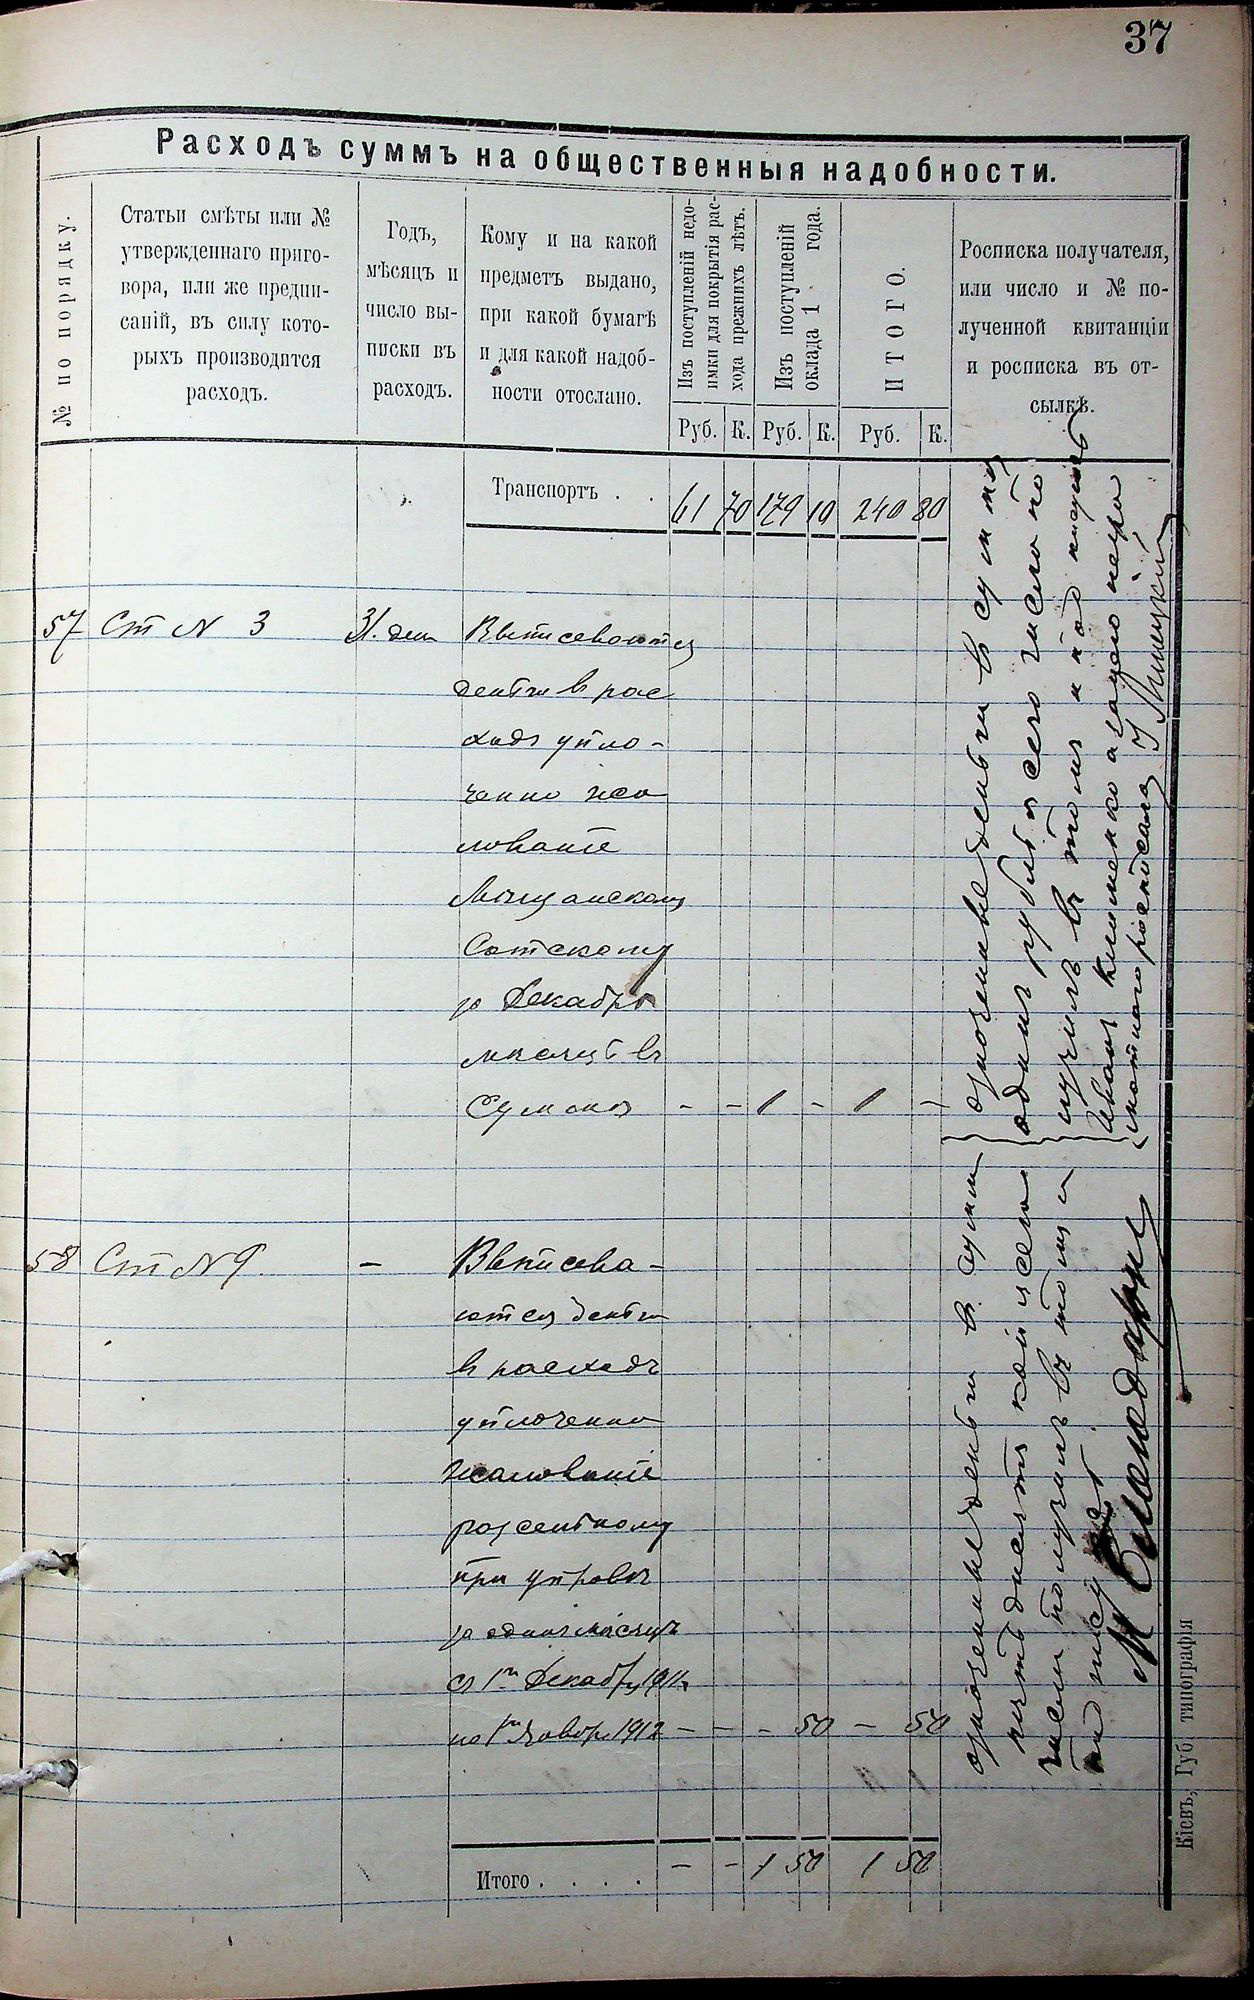 37
Расходъ суммъ на общественныя надобности.
№ по порядку.
Статьи смѣты или №
утвержденнаго приго-
вора, или же предпи-
саній, въ силу кото-
рыхъ производится
расходъ.
Годъ,
мѣсяцъ и
число вы-
писки въ
расходъ.
Кому и на какой
предметъ выдано,
при какой бумагѣ
и для какой надоб-
ности отослано.
Изъ поступленій недо-
имки для покрытія рас-
хода прежнихъ лѣтъ.
Изъ поступленій
оклада 1 года.
ИТОГО.
Росписка получателя,
или число и № по-
лученной квитанціи
и росписка въ от-
сылкѣ.
Руб. К. Руб. К. Руб. К.
Транспортъ . . 61 70 179 10 240 80
57 Ст N 3 31. дек Выписеваются
деньги в рас
ходъ упло-
ченно жа
лованіе
Мѣщанскому
Сотскому
за Декабрь
месяцъ въ
Сумме - - 1 - 1 -
означенные деньги в сумме
одинъ рубль сего числа по
лучилъ въ томъ и подписуюсь
Иванъ Клименко а за него негра
мотнаго росписался
58 Ст N 9. - Выписева-
ются деньги
в расходъ
уплоченно
жалованіе
разсыльному
при управѣ
за одинъ мѣсяцъ
съ 1го Декабря 1911г
по 1го Января 1912 - - - 50 - 50
означенные деньги в сумме
пятьдесятъ копѣекъ сего
числа получилъ въ томъ и
подписуюсь
Итого . . . . - - 1 50 1 50
Кіевъ, Губ. типографія